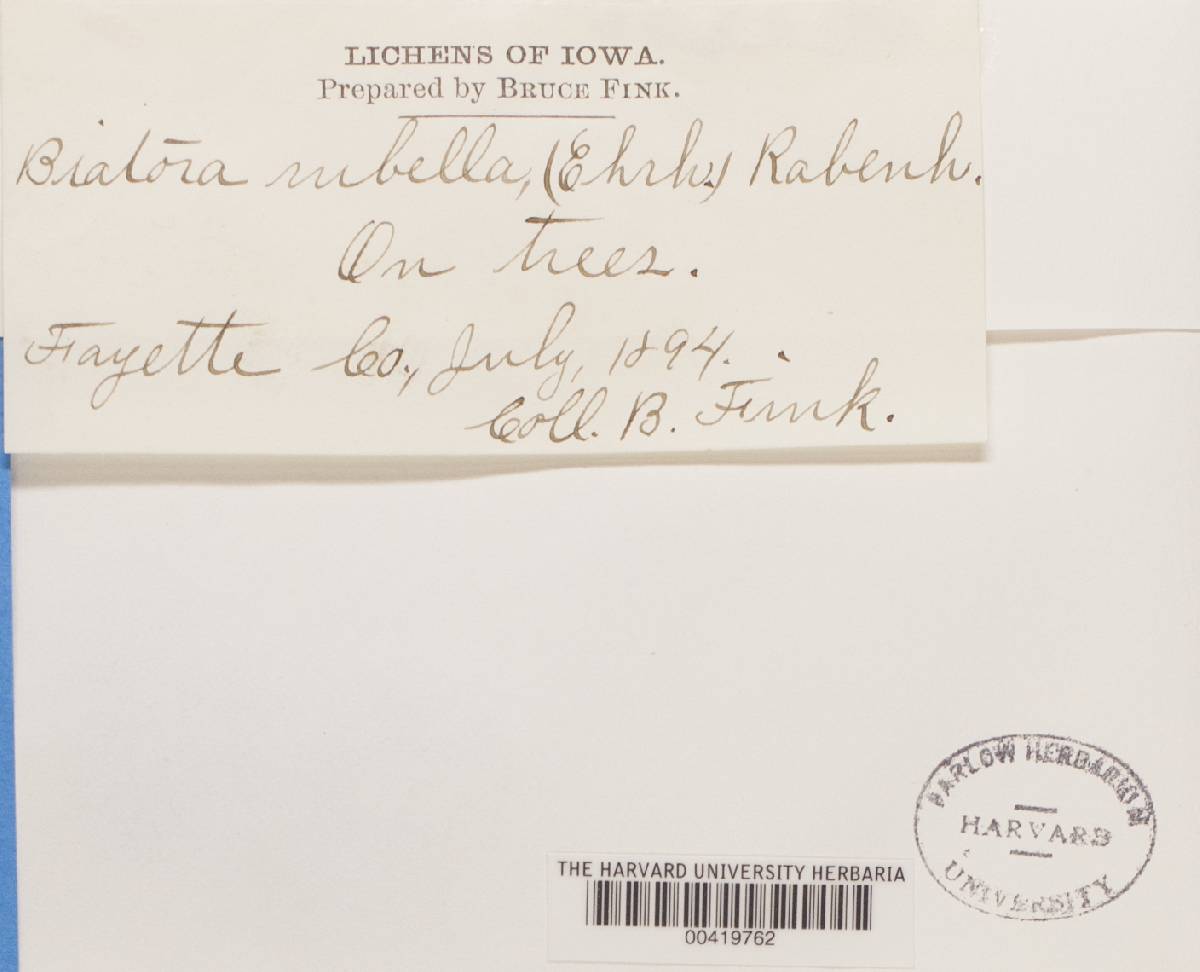 LICHENS OF IOWA.
Prepared by BRUCE FINK.
Biatora rubella, (Ehrh.) Rabenh.
On trees.
Fayette Co., July, 1894.
Coll. B. Fink.
FARLOW HERBARIUM
HARVARD
UNIVERSITY
THE HARVARD UNIVERSITY HERBARIA
00419762